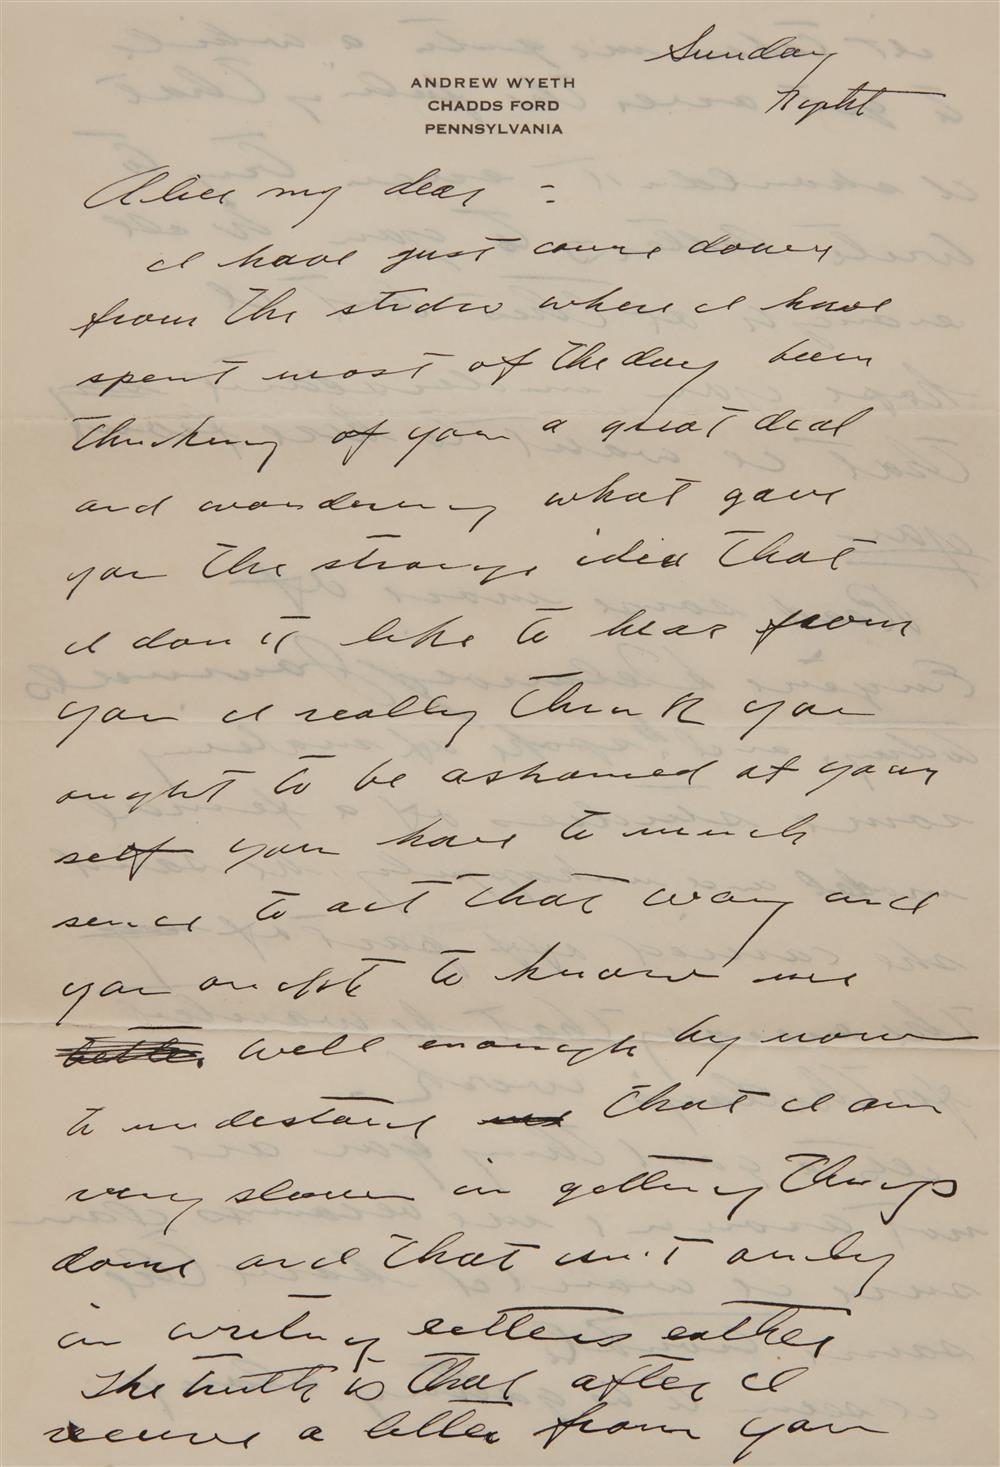 Sunday
Night
ANDREW WYETH
CHADDS FORD
PENNSYLVANIA
Alice my dear -
I have just come down
from the studio where I have
spent most of the day been
thinking of you a great deal
and wondering what gave
you the strange idea that
I don't like to hear from
you I really think you
ought to be ashamed of your
self you have to much
sence to act that way and
you ought to know me
better well enough by now
to undestand that I am
very slow in getting things
done and that isn't only
in writing letters eather
The truth is that after I
receive a letter from you